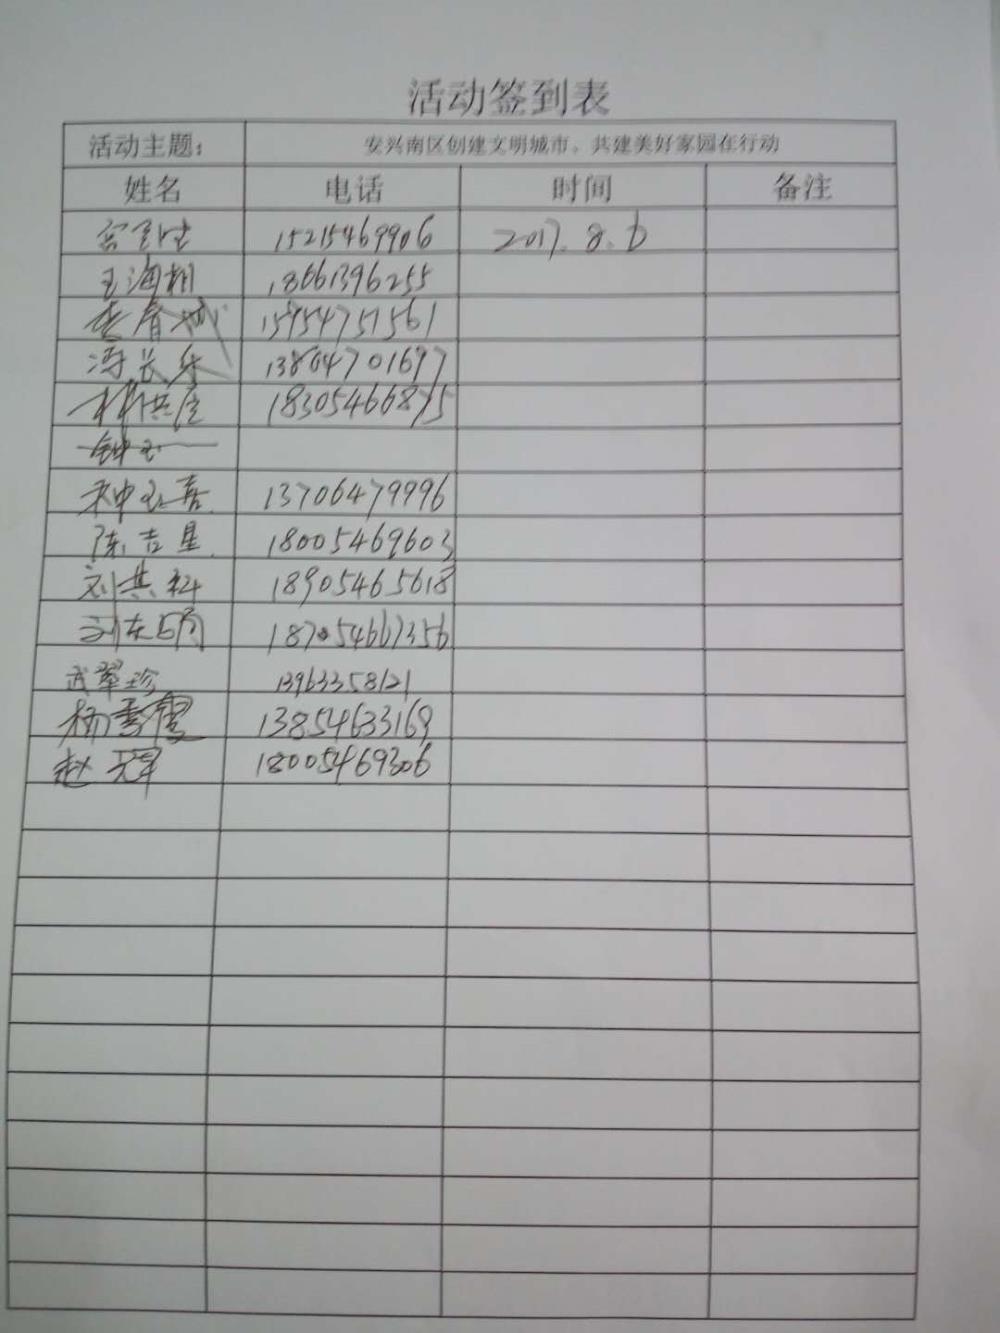 活动签到表
活动主题： 安兴南区创建文明城市、共建美好家园在行动
姓名 电话 时间 备注
15215469906 2017.8.6
王海相 18661396255
李春城 15954751561
冯长乐 13864701697
林洪俊 18305466875
钟玉
种玉喜 13706479996
陈吉星 18005469603
刘其科 18905465618
刘东明 187054667356
武翠珍 13963358121
杨秀霞 13854633169
赵冠军 18005469306